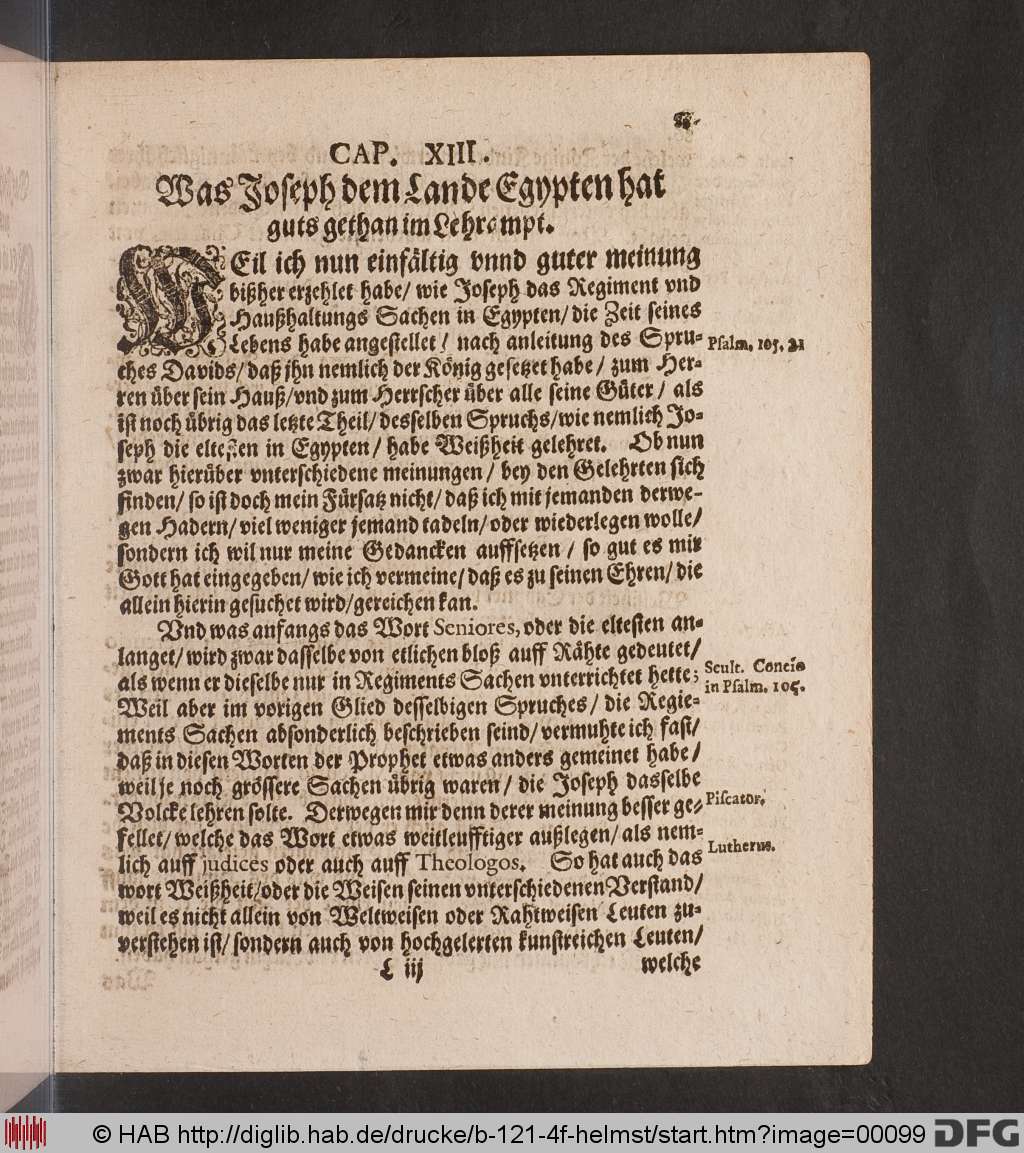 CAP. XIII.
Was Joseph dem Lande Egypten hat
guts gethan im Lehrampt.
WEil ich nun einfältig vnnd guter meinung
bißher erzehlet habe/ wie Joseph das Regiment vnd
Haußhaltungs Sachen in Egypten/ die Zeit seines
Lebens habe angestellet/ nach anleitung des Spru-
Psalm. 105. 21
ches Davids/ daß jhn nemlich der König gesetzet habe/ zum Her-
ren über sein Hauß/ vnd zum Herrscher über alle seine Güter/ als
ist noch übrig das letzte Theil/ desselben Spruchs/ wie nemlich Jo-
seph die eltesten in Egypten/ habe Weißheit gelehret. Ob nun
zwar hierüber vnterschiedene meinungen/ bey den Gelehrten sich
finden/ so ist doch mein Fürsatz nicht/ daß ich mit jemanden derwe-
gen Hadern/ viel weniger jemand tadeln/ oder wiederlegen wolle/
sondern ich wil nur meine Gedancken auffsetzen/ so gut es mir
Gott hat eingegeben/ wie ich vermeine/ daß es zu seinen Ehren/ die
allein hierin gesuchet wird/ gereichen kan.
Vnd was anfangs das Wort Seniores, oder die eltesten an-
langet/ wird zwar dasselbe von etlichen bloß auff Rähte gedeutet/
als wenn er dieselbe nur in Regiments Sachen vnterrichtet hette;
Scult. Concio
in Psalm. 105.
Weil aber im vorigen Glied desselbigen Spruches/ die Regie-
ments Sachen absonderlich beschrieben seind/ vermuhte ich fast/
daß in diesen Worten der Prophet etwas anders gemeinet habe/
weil je noch grössere Sachen übrig waren/ die Joseph dasselbe
Volcke lehren solte. Derwegen mir denn derer meinung besser ge-
Piscator.
fellet/ welche das Wort etwas weitleufftiger außlegen/ als nem-
Lutherus.
lich auff judices oder auch auff Theologos. So hat auch das
wort Weißheit/ oder die Weisen seinen vnterschiedenen Verstand/
weil es nicht allein von Weltweisen oder Rahtweisen Leuten zu-
verstehen ist/ sondern auch von hochgelerten kunstreichen Leuten/
L iij
welche
© HAB http://diglib.hab.de/drucke/b-121-4f-helmst/start.htm?image=00099
DFG